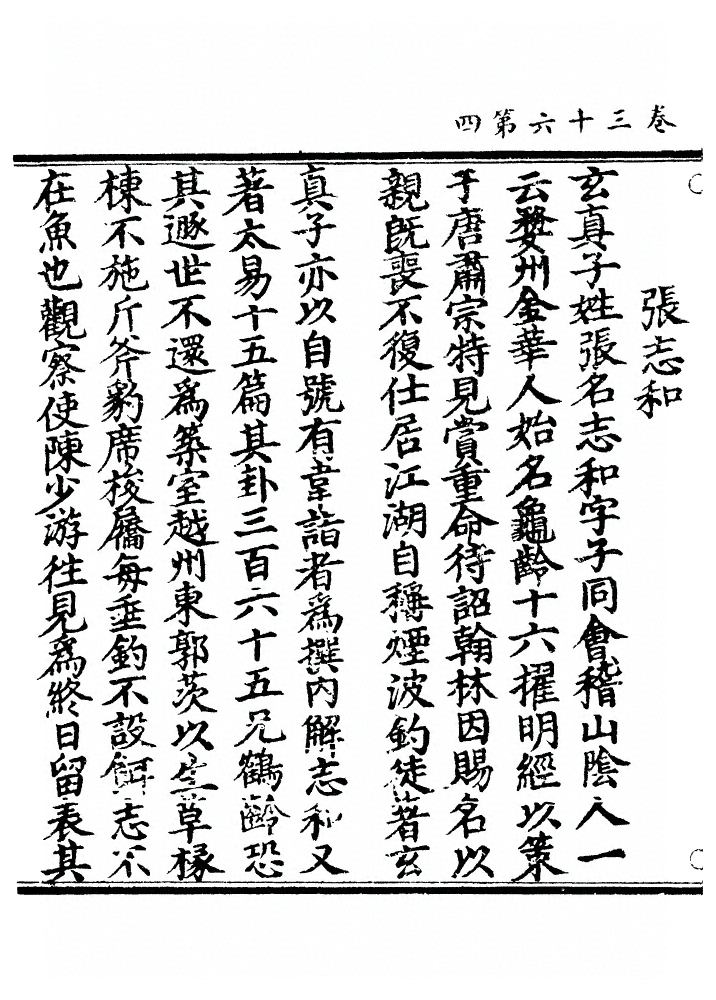 卷三十六第四
張志和
玄真子姓張名志和字子同會稽山陰人一
云婺州金華人始名龜齡十六擢明經以策
于唐肅宗特見賞重命待詔翰林因賜名以
親既喪不復仕居江湖自稱煙波釣徒著玄
真子亦以自號有韋詣者為撰內解志和又
著太易十五篇其卦三百六十五兄鶴齡恐
其遯世不還為築室越州東郭茨以生草椽
棟不施斤斧豹席椶屩每垂釣不設餌志不
在魚也觀察使陳少游往見為終日留表其